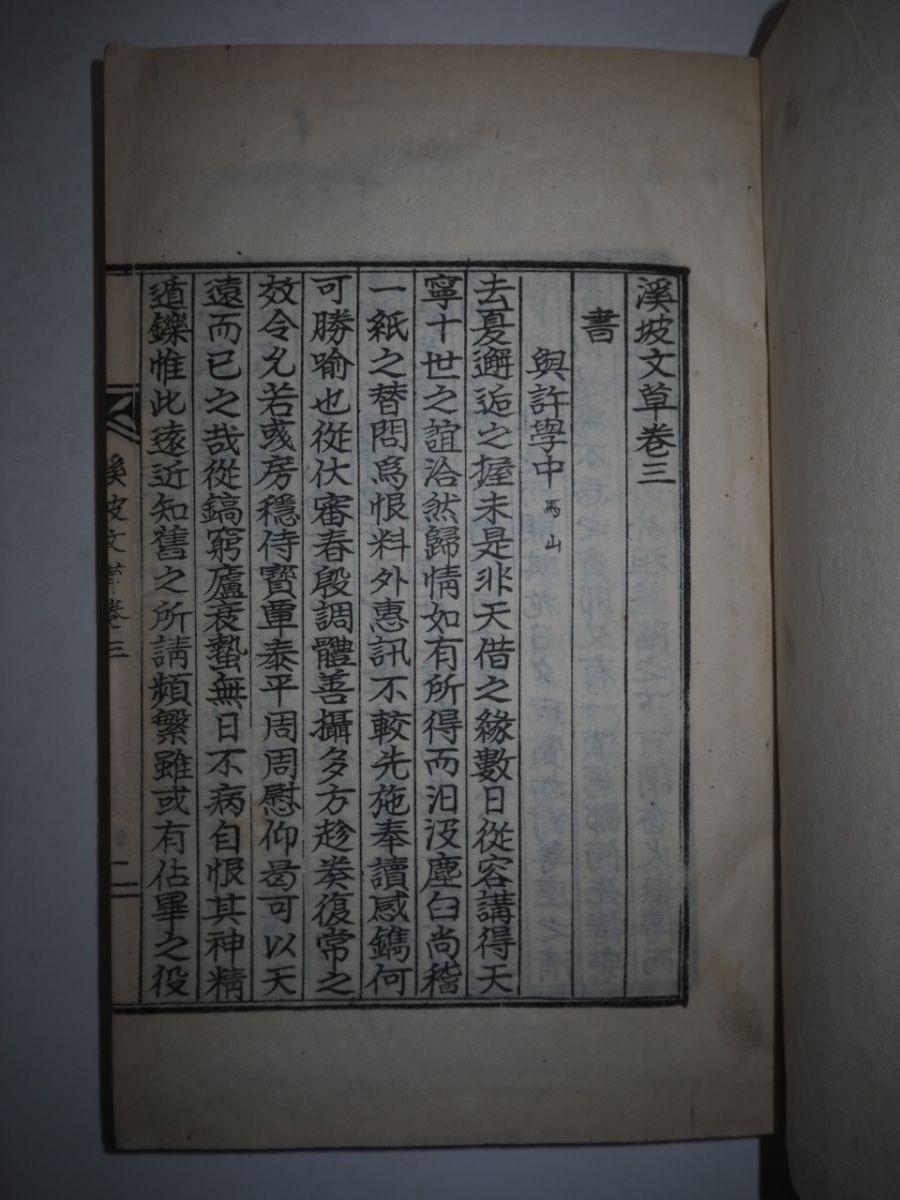 溪坡文草卷三
書
與許學中 馬山
去夏邂逅之握未是非天借之緣數日從容講得天
寧十世之誼洽然歸情如有所得而汨汲塵臼尚稽
一紙之替問爲恨料外惠訊不較先施奉讀感鐫何
可勝喻也從伏審春殷調體善攝多方趁葵復常之
效令允若彧房穩侍寶覃泰平周周慰仰曷可以天
遠而已之哉從鎬窮廬衰蟄無日不病自恨其神精
遁鑠惟此遠近知舊之所請頻繁雖或有佔畢之役
溪坡文草卷三